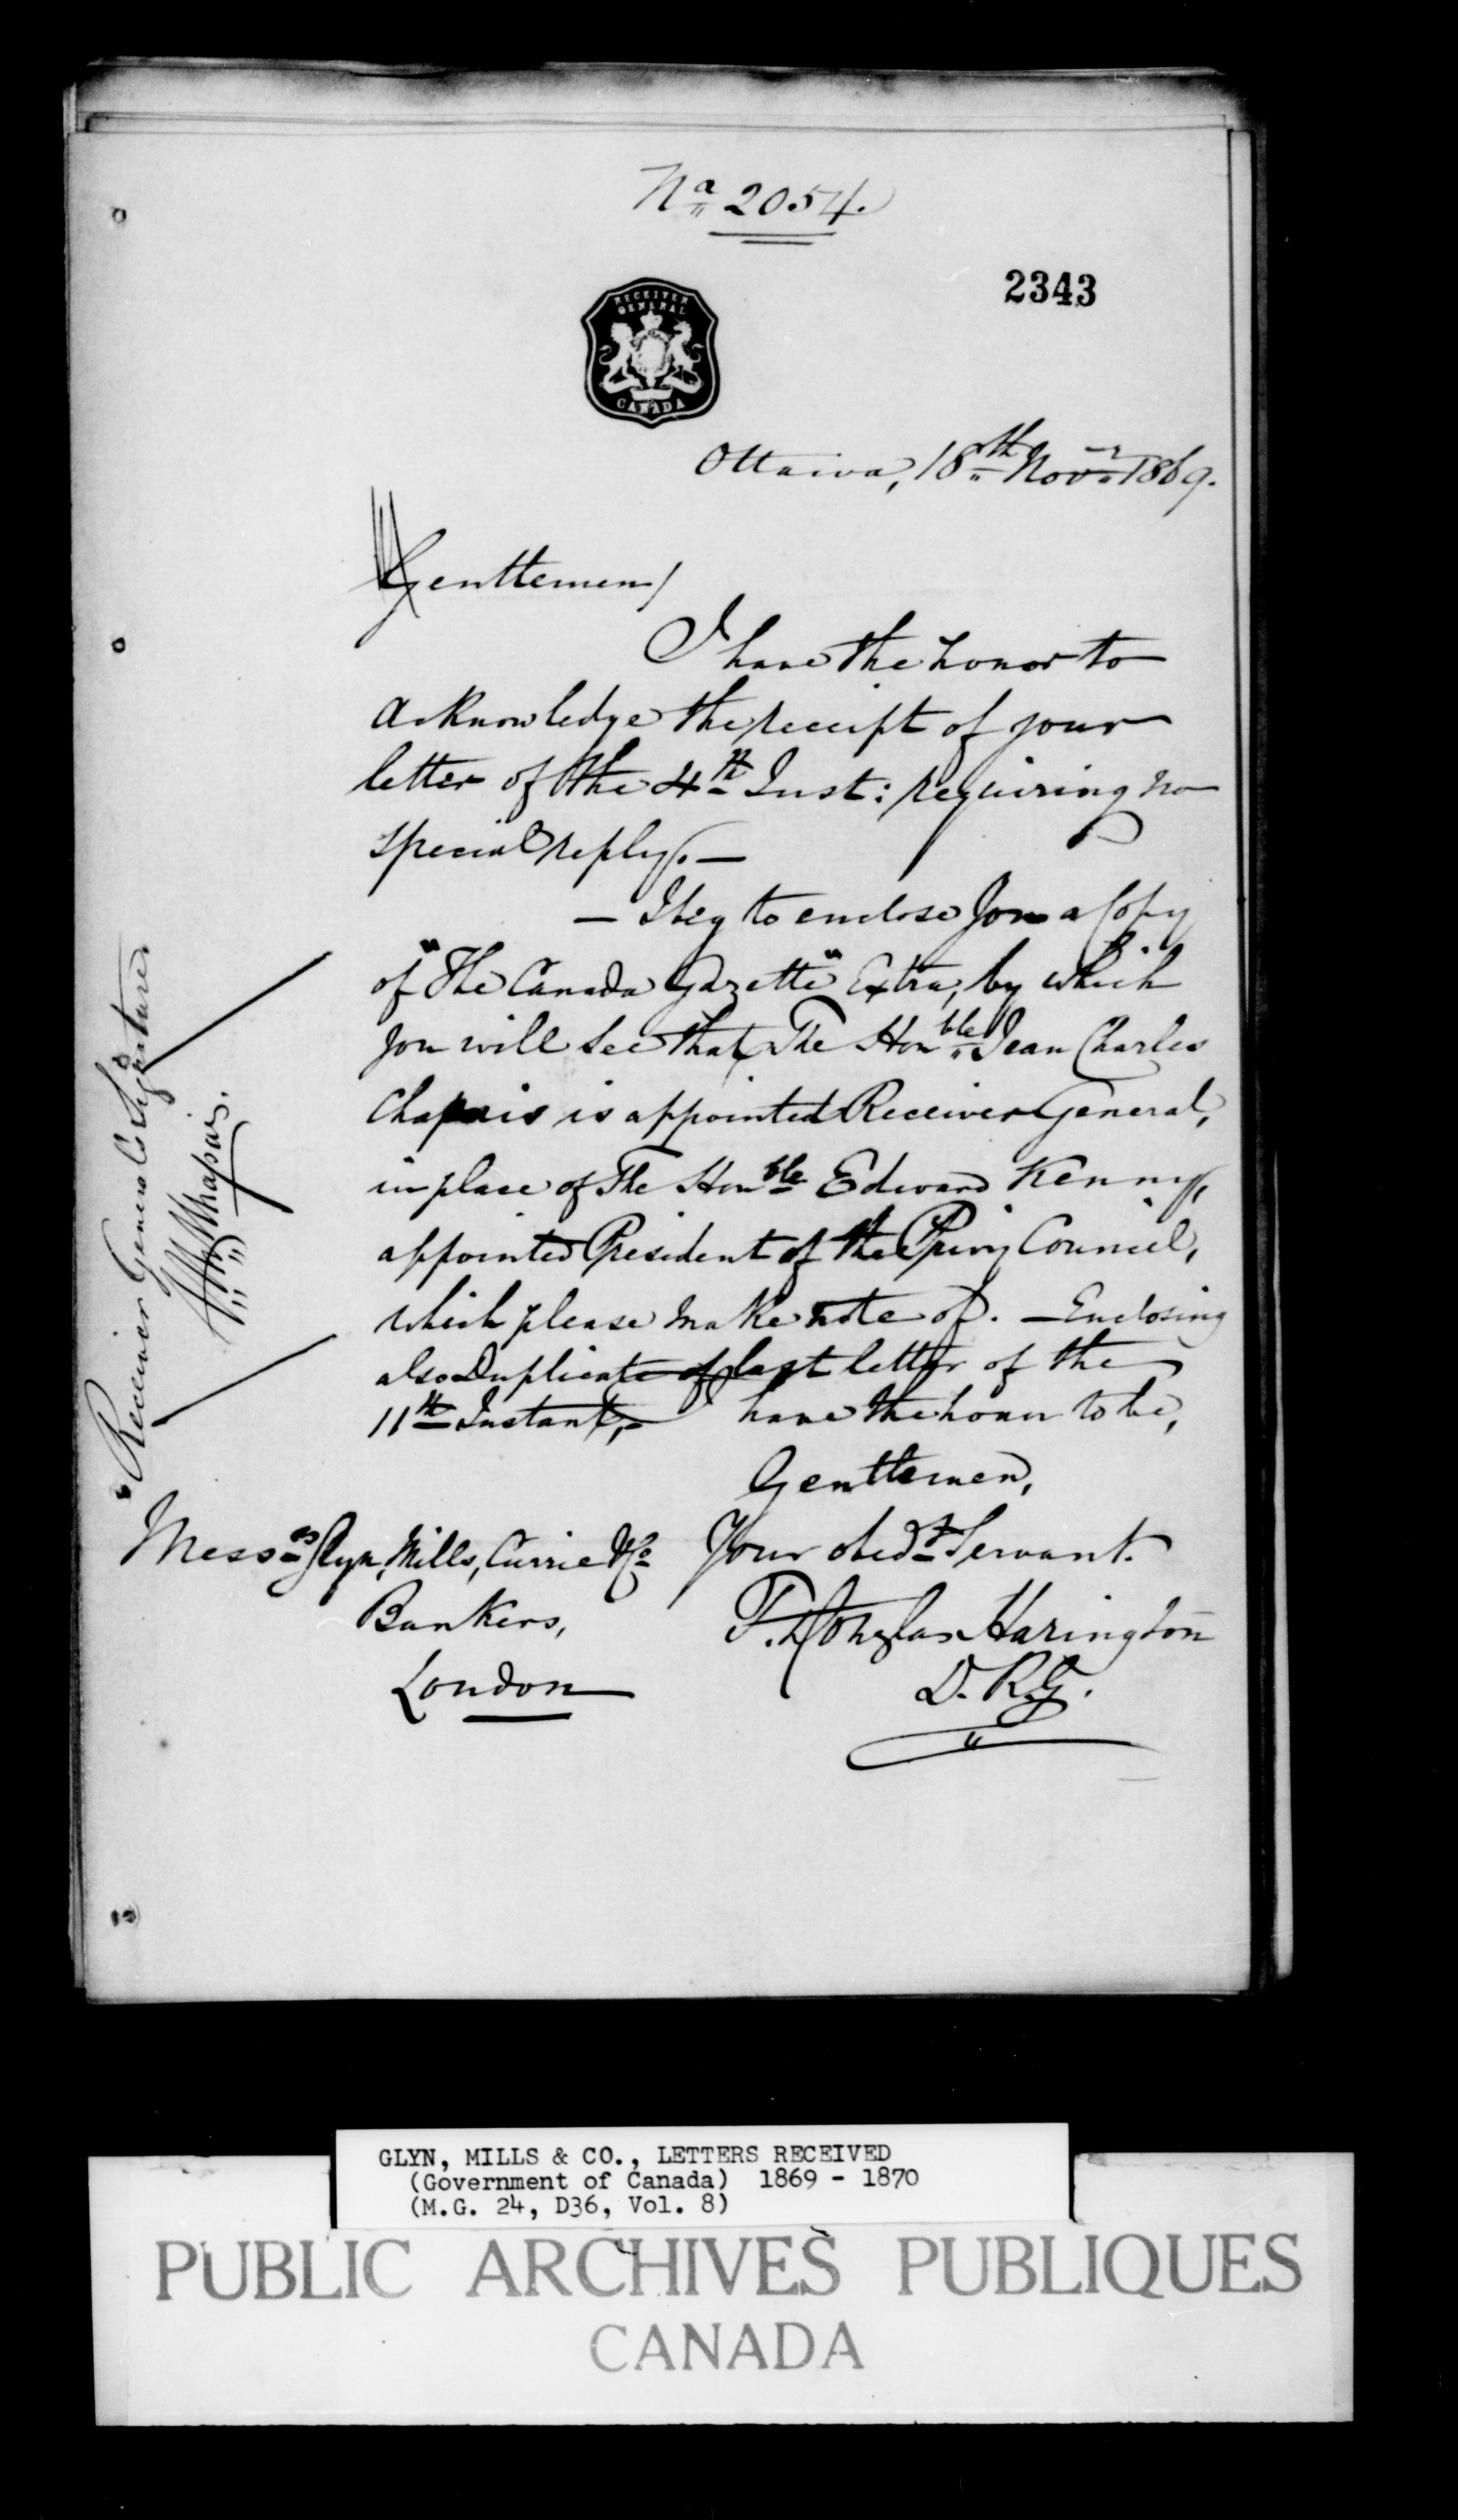 No 2054.
2343
RECEIVER
GENERAL
CANADA
Ottawa, 18th Novr 1869.
Gentlemen/
I have the honor to
acknowledge the receipt of your
letter of the 4th Inst: requiring no
special reply. —
— I beg to enclose you a Copy
of "The Canada Gazette" Extra, by which
you will see that The Honble Jean Charles
Chapais is appointed Receiver General,
in place of The Honble Edward Kenny,
appointed President of the Privy Council,
which please make note of. — Enclosing
also Duplicate of last letter of the
11th Instant, — I have the honor to be,
Gentlemen,
Your obedt Servant.
F. Douglas Harington
D. R. G.
Messrs Glyn, Mills, Currie & Co
Bankers,
London
"Receiver General's Signature
Chapais.
GLYN, MILLS & CO., LETTERS RECEIVED
(Government of Canada) 1869 - 1870
(M.G. 24, D36, Vol. 8)
PUBLIC ARCHIVES PUBLIQUES
CANADA